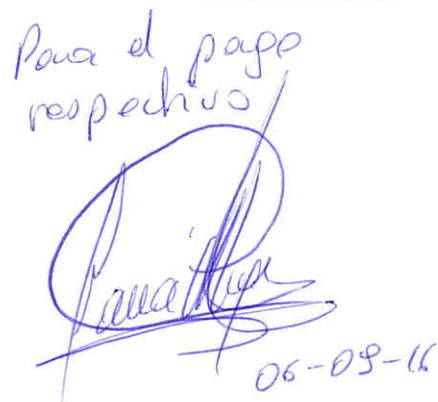 Para el pago
respectivo
06-09-16